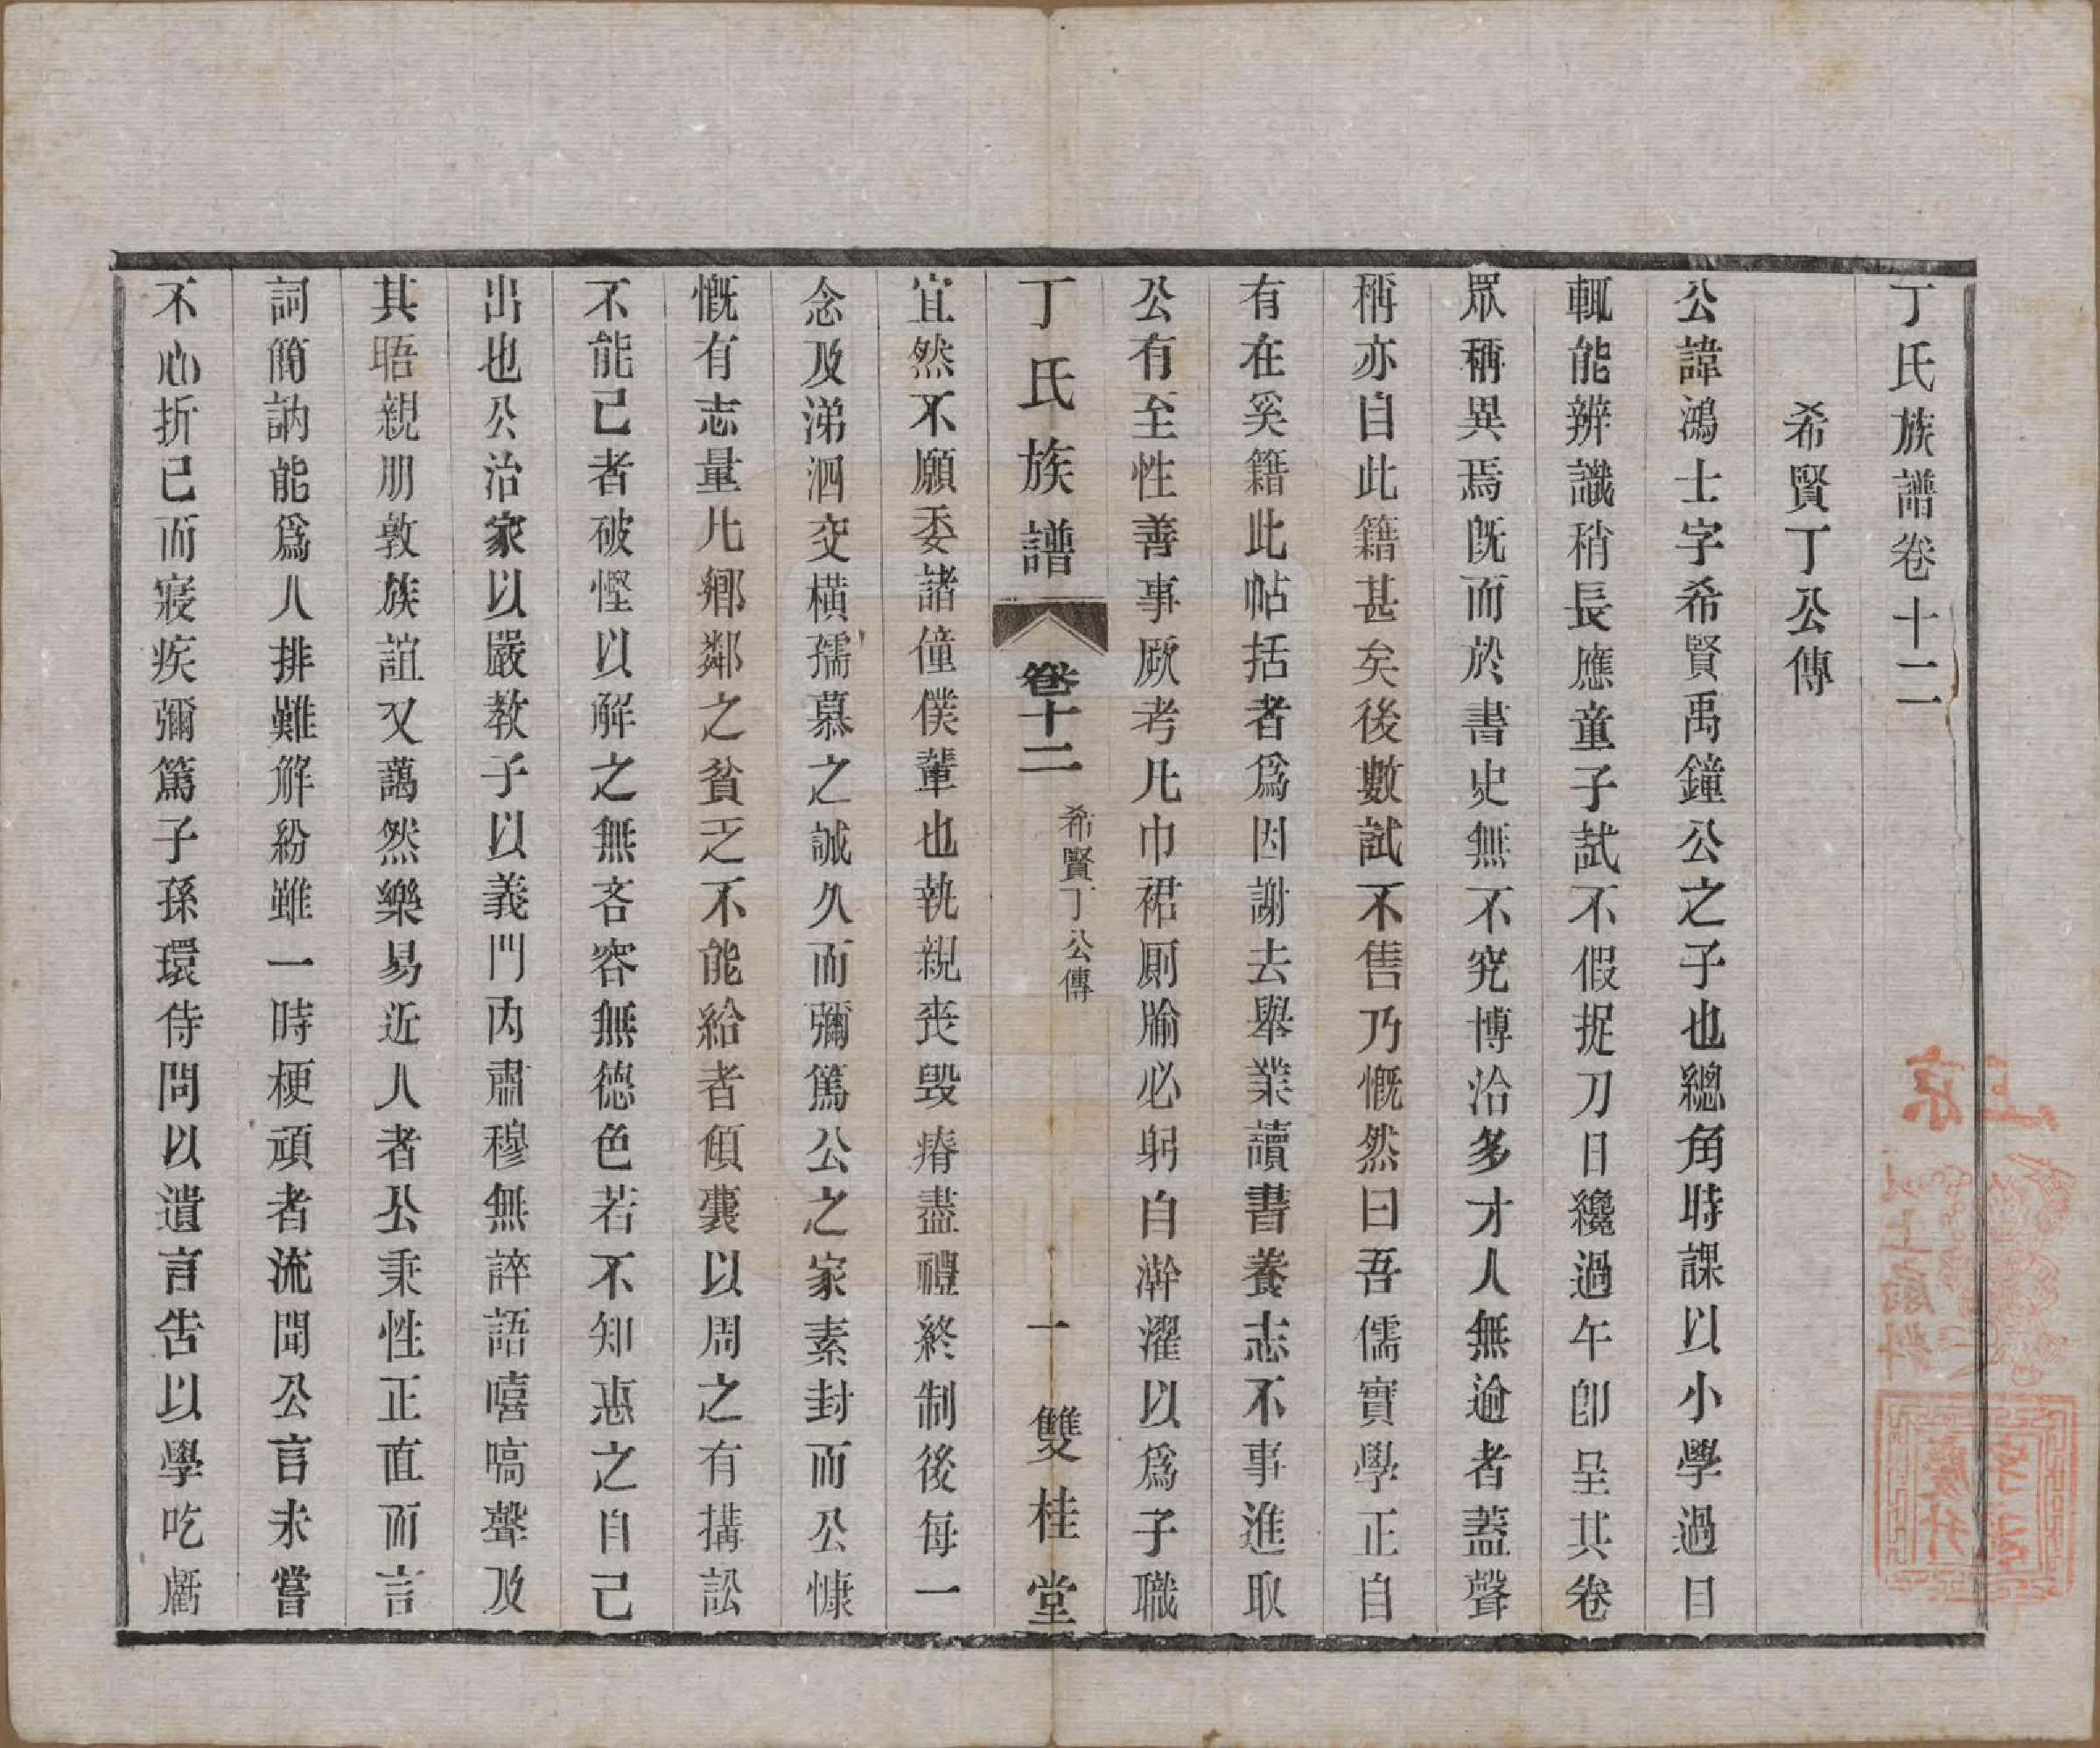 丁氏族譜卷十二
希賢丁公傳
公諱鴻士字希賢禹鐘公之子也總角時課以小學過日
輒能辨識稍長應童子試不假捉刀日纔過午卽呈其卷
眾稱異焉旣而於書史無不究博洽多才人無逾者蓋聲
稱亦自此籍甚矣後數試不售乃慨然曰吾儒實學正自
有在奚籍此帖括者爲因謝去舉業讀書養志不事進取
公有至性善事厥考凡巾裙厠牏必躬自澣濯以爲子職
丁氏族譜 卷十二 希賢丁公傳 一 雙桂堂
宜然不願委諸僮僕輩也執親喪毀瘠盡禮終制後每一
念及涕泗交橫孺慕之誠久而彌篤公之家素封而公慷
慨有志量凡鄉鄰之貧乏不能給者傾囊以周之有搆訟
不能已者破慳以解之無吝容無德色若不知惠之自己
出也公治家以嚴教子以義門內肅穆無誶語嘻嗃聲及
其晤親朋敦族誼又藹然樂易近人者公秉性正直而言
詞簡訥能爲人排難解紛雖一時梗頑者流聞公言未嘗
不心折已而寢疾彌篤子孫環侍問以遺言告以學吃虧